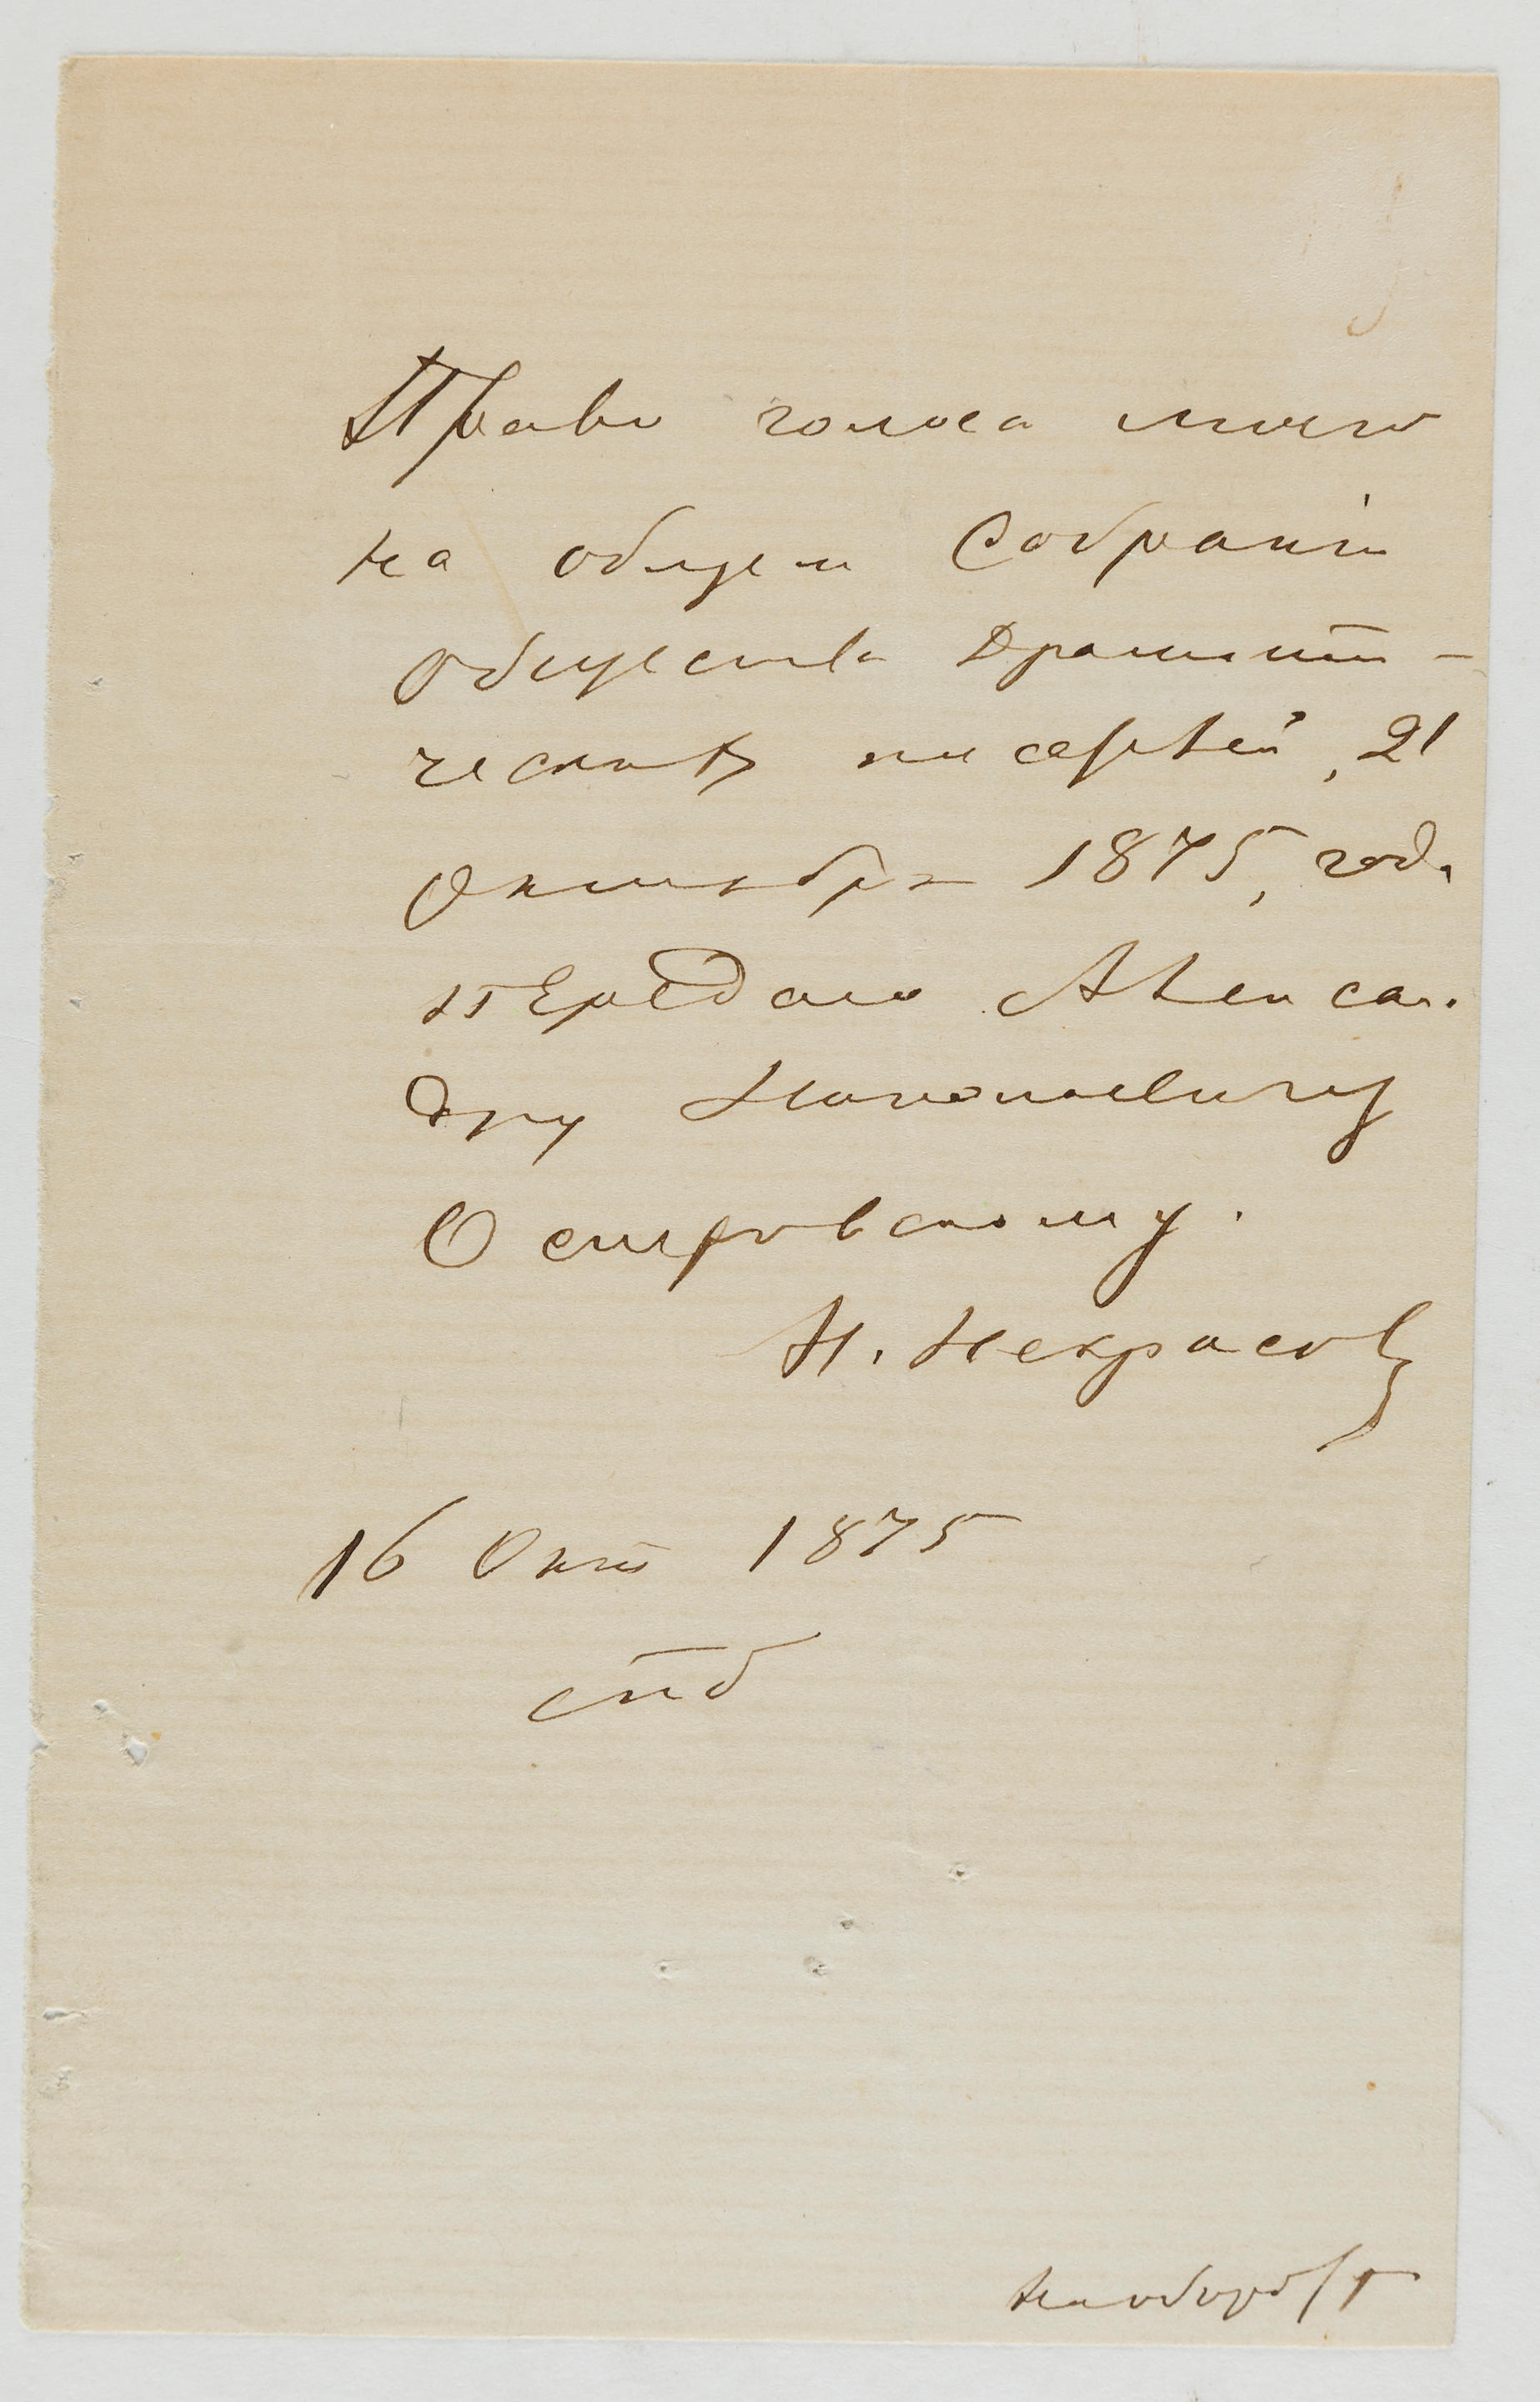 Право голоса моего
на общем Собраніи
общества Драмати-
ческихъ писателей, 21
октября 1875, года
передаю Алексан.
дру Николаевичу
Островскому.
Н. Некрасовъ
16 Окт 1875
спб
наоборот